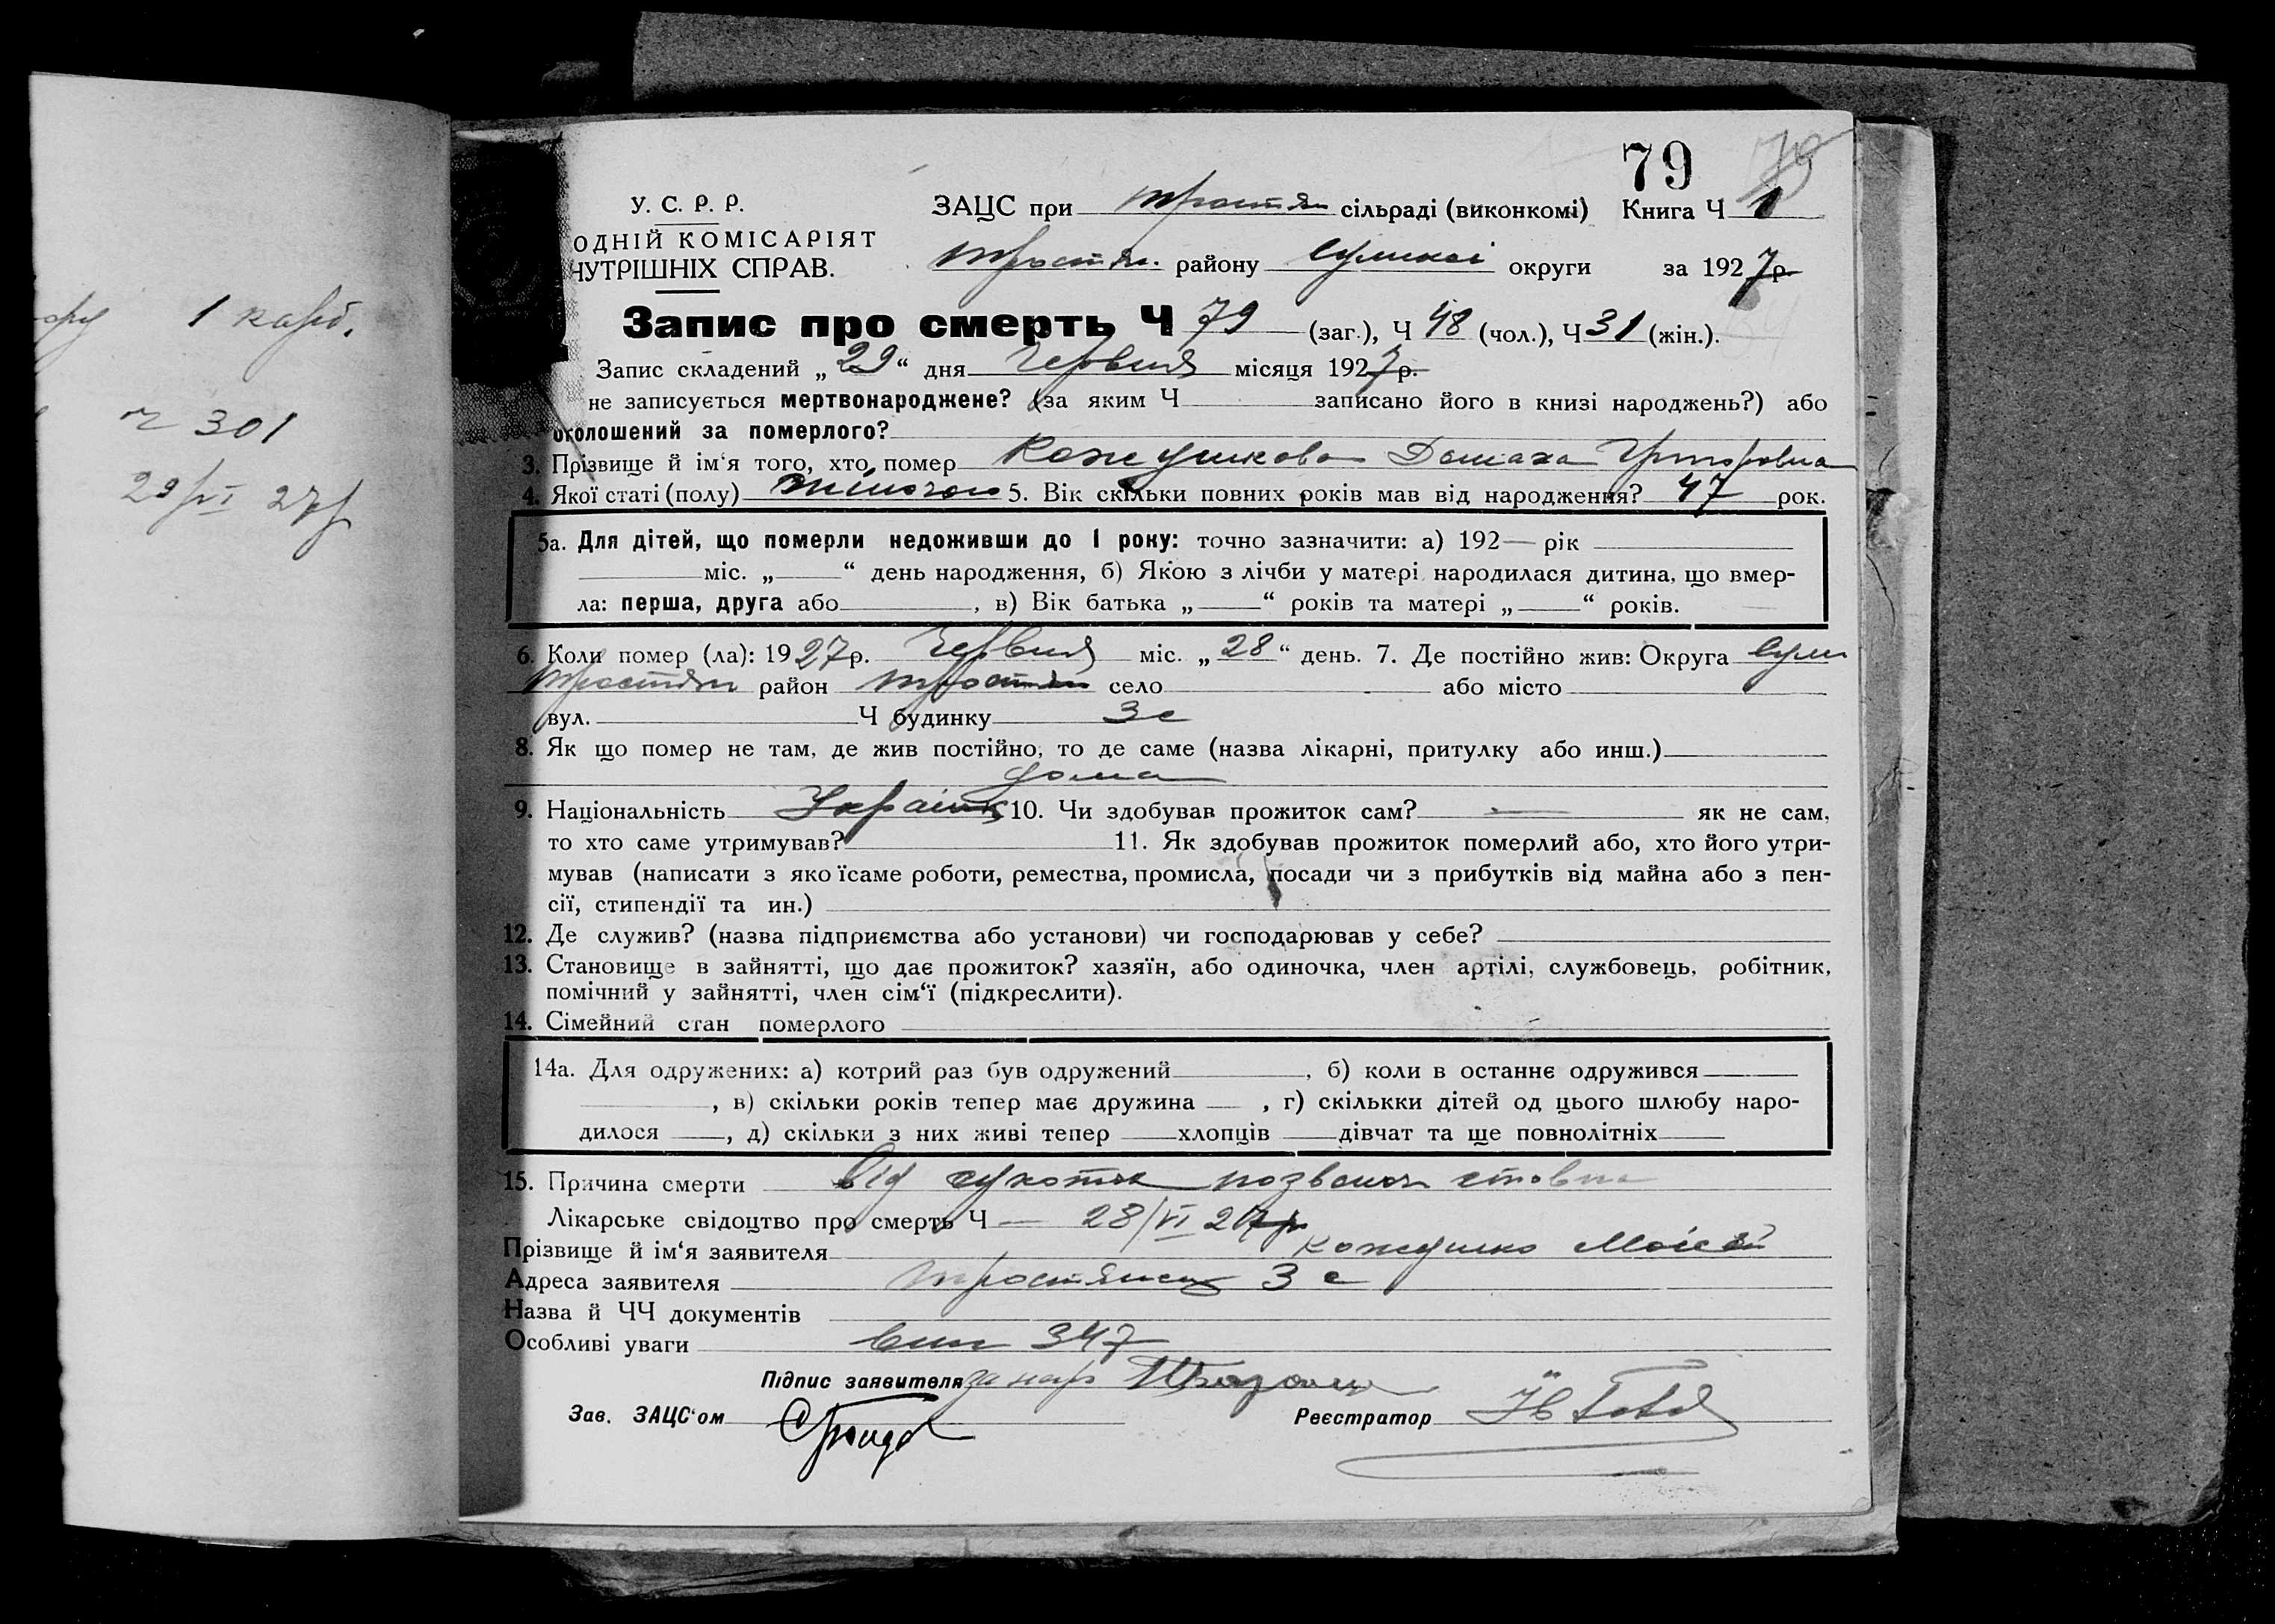 1 карб.
ч 301
29/VI 27р
79 79
У. С. Р. Р. ЗАЦС при Тростян сільраді (виконкомі) Книга Ч 1
ОДНІЙ КОМІСАРІЯТ
НУТРІШНІХ СПРАВ. Тростян. району Сумської округи за 1927р.
Запис про смерть Ч 79 (заг.), Ч 48 (чол.), Ч 31 (жін.).
Запис складений „29“ дня Червня місяця 1927р.
не записується мертвонароджене? (за яким Ч записано його в книзі народжень?) або
оголошений за померлого?
3. Прізвище й ім‘я того, хто помер Кожушкова Домаха Григоровна
4. Якої статі (полу) жіночого 5. Вік скільки повних років мав від народження? 47 рок.
5а. Для дітей, що померли недоживши до 1 року: точно зазначити: а) 192— рік
міс. „ “ день народження, б) Якою з лічби у матері народилася дитина, що вмер-
ла: перша, друга або , в) Вік батька „ “ років та матері „ “ років.
6. Коли помер (ла): 1927р. Червня міс. „28“ день. 7. Де постійно жив: Округа Сум
Тростян район Тростян село або місто
вул. Ч будинку 3с
8. Як що помер не там, де жив постійно, то де саме (назва лікарні, притулку або инш.)
дома
9. Національність Україн 10. Чи здобував прожиток сам? — як не сам,
то хто саме утримував? 11. Як здобував прожиток померлий або, хто його утри-
мував (написати з якоїсаме роботи, ремества, промисла, посади чи з прибутків від майна або з пен-
сії, стипендії та ин.)
12. Де служив? (назва підприємства або установи) чи господарював у себе?
13. Становище в зайнятті, що дає прожиток? хазяїн, або одиночка, член артілі, службовець, робітник,
помічний у зайнятті, член сім‘ї (підкреслити).
14. Сімейний стан померлого
14а. Для одружених: а) котрий раз був одружений , б) коли в останнє одружився
, в) скільки років тепер має дружина , г) скількки дітей од цього шлюбу наро-
дилося , д) скільки з них живі тепер хлопців дівчат та ще повнолітніх
15. Причина смерти Від сухотки позвоноч стовпа
Лікарське свідоцтво про смерть Ч — 28/VI 27р
Прізвище й ім‘я заявителя Кожушко Моісей
Адреса заявителя Тростянець 3 с
Назва й ЧЧ документів
Особливі уваги 347
Підпис заявителя за нер
Зав. ЗАЦС‘ом Реєстратор